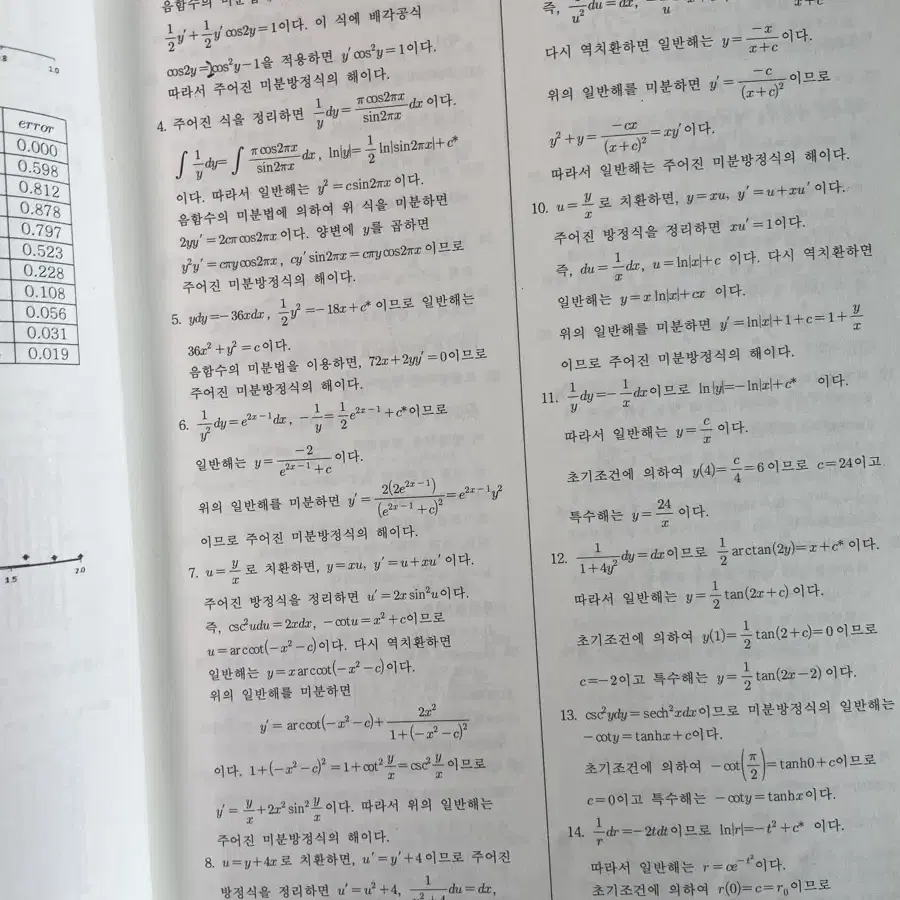 0.8
1.0
error
0.000
0.598
0.812
0.878
0.797
0.523
0.228
0.108
0.056
0.031
0.019
1.5
2.0
음함수의 미분법에
1/2 y′+1/2 y′cos2y=1이다. 이 식에 배각공식
cos2y=2cos²y−1을 적용하면 y′cos²y=1이다.
따라서 주어진 미분방정식의 해이다.
4. 주어진 식을 정리하면 1/y dy=πcos2πx/sin2πx dx이다.
∫1/y dy=∫πcos2πx/sin2πx dx, ln|y|=1/2 ln|sin2πx|+c*
이다. 따라서 일반해는 y²=csin2πx이다.
음함수의 미분법에 의하여 위 식을 미분하면
2yy′=2cπcos2πx이다. 양변에 y를 곱하면
y²y′=cπycos2πx, cy′sin2πx=cπycos2πx이므로
주어진 미분방정식의 해이다.
5. ydy=−36xdx, 1/2 y²=−18x+c*이므로 일반해는
36x²+y²=c이다.
음함수의 미분법을 이용하면, 72x+2yy′=0이므로
주어진 미분방정식의 해이다.
6. 1/y² dy=e²ˣ⁻¹dx, −1/y=1/2 e²ˣ⁻¹+c*이므로
일반해는 y=−2/(e²ˣ⁻¹+c)이다.
위의 일반해를 미분하면 y′=2(2e²ˣ⁻¹)/(e²ˣ⁻¹+c)²=e²ˣ⁻¹y²
이므로 주어진 미분방정식의 해이다.
7. u=y/x로 치환하면, y=xu, y′=u+xu′이다.
주어진 방정식을 정리하면 u′=2xsin²u이다.
즉, csc²udu=2xdx, −cotu=x²+c이므로
u=arccot(−x²−c)이다. 다시 역치환하면
일반해는 y=xarccot(−x²−c)이다.
위의 일반해를 미분하면
y′=arccot(−x²−c)+2x²/(1+(−x²−c)²)
이다. 1+(−x²−c)²=1+cot² y/x=csc² y/x이므로
y′=y/x+2x²sin² y/x이다. 따라서 위의 일반해는
주어진 미분방정식의 해이다.
8. u=y+4x로 치환하면, u′=y′+4이므로 주어진
방정식을 정리하면 u′=u²+4, 1/(u²+4) du=dx,
즉, 1/u² du=dx,
다시 역치환하면 일반해는 y=−x/(x+c)이다.
위의 일반해를 미분하면 y′=−c/(x+c)²이므로
y²+y=−cx/(x+c)²=xy′이다.
따라서 일반해는 주어진 미분방정식의 해이다.
10. u=y/x로 치환하면, y=xu, y′=u+xu′이다.
주어진 방정식을 정리하면 xu′=1이다.
즉, du=1/x dx, u=ln|x|+c 이다. 다시 역치환하면
일반해는 y=xln|x|+cx 이다.
위의 일반해를 미분하면 y′=ln|x|+1+c=1+y/x
이므로 주어진 미분방정식의 해이다.
11. 1/y dy=−1/x dx이므로 ln|y|=−ln|x|+c* 이다.
따라서 일반해는 y=c/x이다.
초기조건에 의하여 y(4)=c/4=6이므로 c=24이고
특수해는 y=24/x이다.
12. 1/(1+4y²) dy=dx이므로 1/2 arctan(2y)=x+c*이다.
따라서 일반해는 y=1/2 tan(2x+c)이다.
초기조건에 의하여 y(1)=1/2 tan(2+c)=0이므로
c=−2이고 특수해는 y=1/2 tan(2x−2)이다.
13. csc²ydy=sech²xdx이므로 미분방정식의 일반해는
−coty=tanhx+c이다.
초기조건에 의하여 −cot(π/2)=tanh0+c이므로
c=0이고 특수해는 −coty=tanhx이다.
14. 1/r dr=−2tdt이므로 ln|r|=−t²+c* 이다.
따라서 일반해는 r=ce^(−t²)이다.
초기조건에 의하여 r(0)=c=r₀이므로